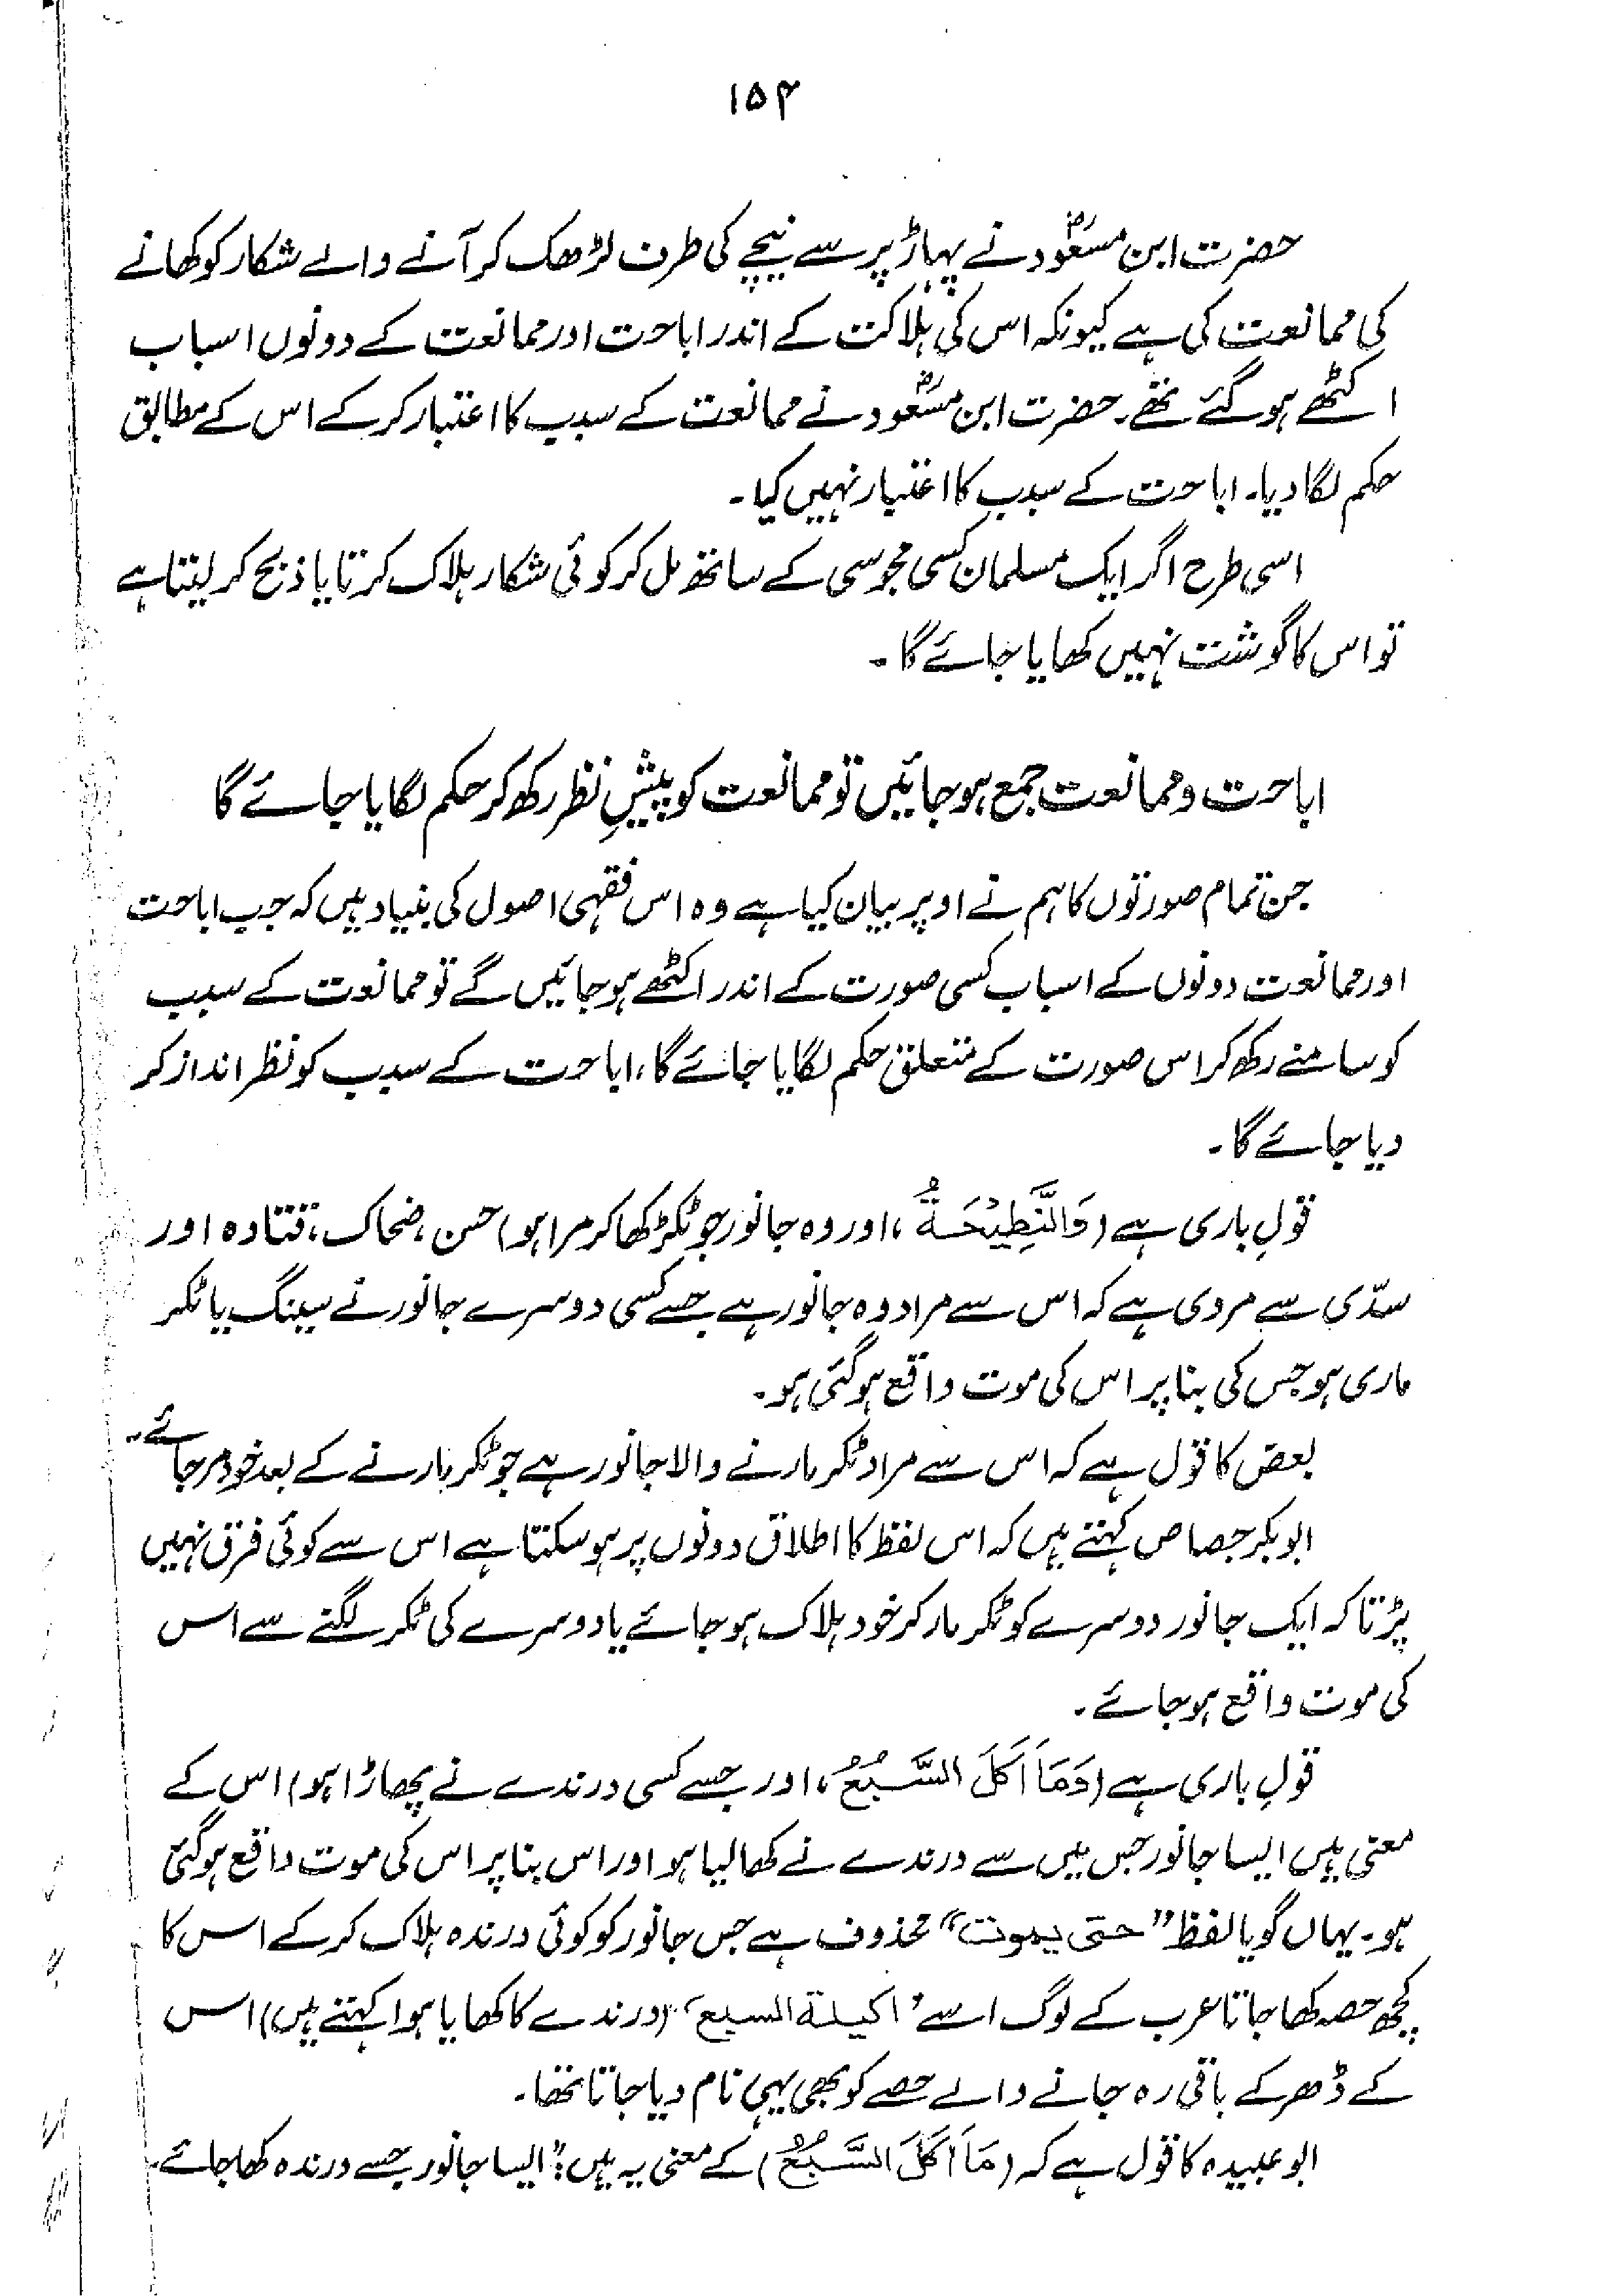 ۱۵۴
حضرت ابن مسعودؓ نے پہاڑ پر سے نیچے کی طرف لڑھک کر آنے والے شکار کو کھانے
کی ممانعت کی ہے کیونکہ اس کی ہلاکت کے اندر اباحت اور ممانعت کے دونوں اسباب
اکٹھے ہو گئے تھے۔ حضرت ابن مسعودؓ نے ممانعت کے سبب کا اعتبار کر کے اس کے مطابق
حکم لگا دیا۔ اباحت کے سبب کا اعتبار نہیں کیا۔
اسی طرح اگر ایک مسلمان کسی مجوسی کے ساتھ مل کر کوئی شکار ہلاک کرتا یا ذبح کر لیتا ہے
تو اس کا گوشت نہیں کھایا جائے گا۔
اباحت و ممانعت جمع ہو جائیں تو ممانعت کو پیشِ نظر رکھ کر حکم لگایا جائے گا
جن تمام صورتوں کا ہم نے اوپر بیان کیا ہے وہ اس فقہی اصول کی بنیاد ہیں کہ جب اباحت
اور ممانعت دونوں کے اسباب کسی صورت کے اندر اکٹھے ہو جائیں گے تو ممانعت کے سبب
کو سامنے رکھ کر اس صورت کے متعلق حکم لگایا جائے گا، اباحت کے سبب کو نظر انداز کر
دیا جائے گا۔
قولِ باری ہے (وَالنَّطِيْحَةُ، اور وہ جانور جو ٹکڑ کھا کر مرا ہو) حسن، ضحاک، قتادہ اور
سدّی سے مروی ہے کہ اس سے مراد وہ جانور ہے جسے کسی دوسرے جانور نے سینگ یا ٹکر
ماری ہو جس کی بنا پر اس کی موت واقع ہو گئی ہو۔
بعض کا قول ہے کہ اس سے مراد ٹکر مارنے والا جانور ہے جو ٹکر مارنے کے بعد خود مر جائے۔
ابوبکر جصاص کہتے ہیں کہ اس لفظ کا اطلاق دونوں پر ہو سکتا ہے اس سے کوئی فرق نہیں
پڑتا کہ ایک جانور دوسرے کو ٹکر مار کر خود ہلاک ہو جائے یا دوسرے کی ٹکر لگنے سے اس
کی موت واقع ہو جائے۔
قولِ باری ہے (وَمَا اَكَلَ السَّبُعُ، اور جسے کسی درندے نے پھاڑا ہو) اس کے
معنی ہیں ایسا جانور جس میں سے درندے نے کھا لیا ہو اور اس بنا پر اس کی موت واقع ہو گئی
ہو۔ یہاں گویا لفظ ”حتی یموت“ محذوف ہے جس جانور کو کوئی درندہ ہلاک کر کے اس کا
کچھ حصہ کھا جاتا عرب کے لوگ اسے ’اکیلۃ السبع‘ (درندے کا کھایا ہوا کہتے ہیں) اس
کے دھڑ کے باقی رہ جانے والے حصے کو بھی یہی نام دیا جاتا تھا۔
ابو عبیدہ کا قول ہے کہ (مَا اَكَلَ السَّبُعُ) کے معنی یہ ہیں: "ایسا جانور جسے درندہ کھا جائے